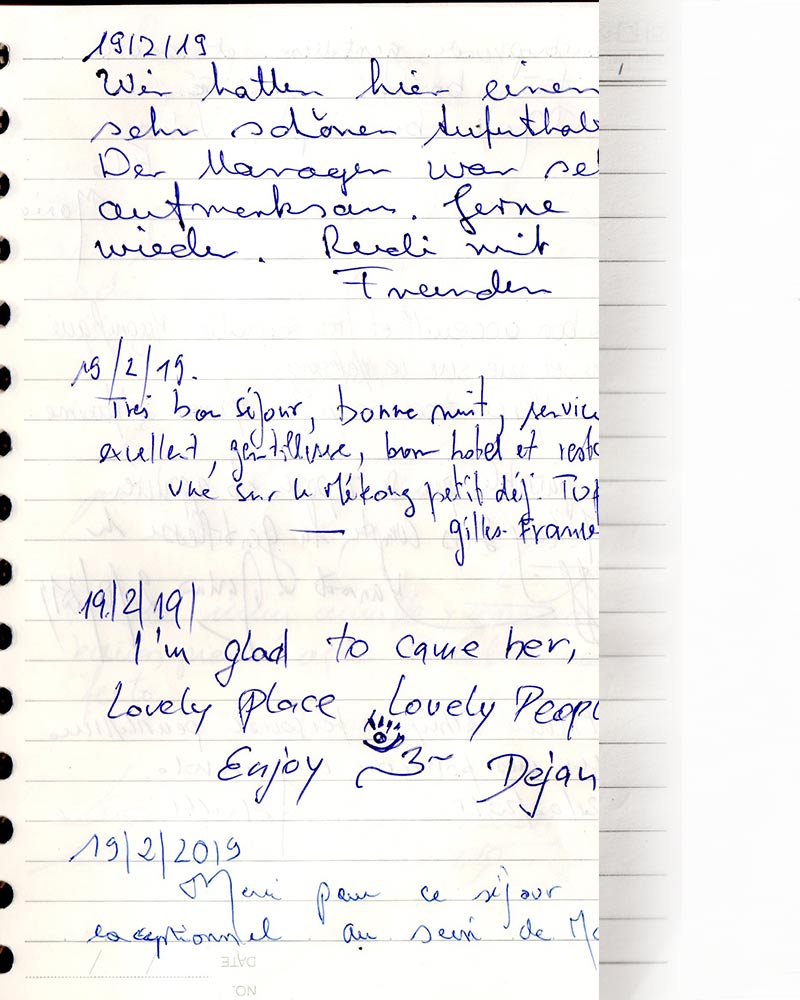 19/2/19
Wir hatten hier einen
sehr schönen Aufenthal
Der Manager war se
aufmerksam. Gerne
wieder. Rudi mit
Freunden
19/2/19.
Très bon séjour, bonne nuit, servic
excellent, gentillesse, bon hotel et rest
vue sur le Mékong petit déj. Top
Gilles France
19/2/19/
I'm glad to came her,
Lovely place, Lovely Peopl
Enjoy Dejan
19/2/2019
Merci pour ce séjour
exceptionnel au sein de M
DATE
NO.